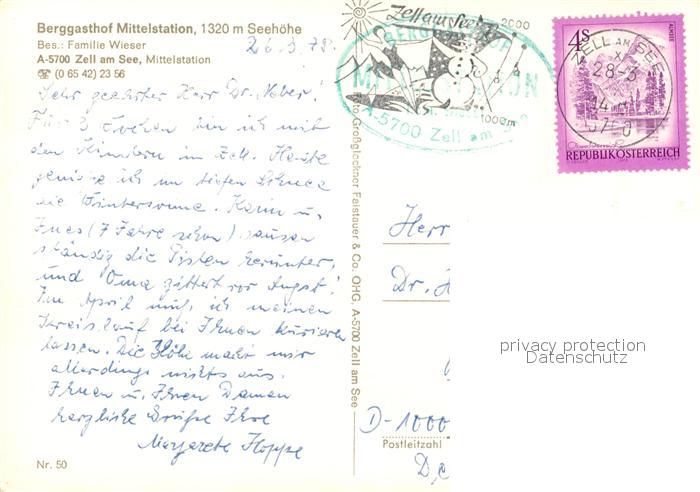 Berggasthof Mittelstation, 1320 m Seehöhe
Bes.: Familie Wieser
26.3.78.
A-5700 Zell am See, Mittelstation
☎ (0 65 42) 23 56
Sehr geehrter Herr Dr. Weber!
Für 3 Wochen bin ich mit
den Kindern in Zell. Heute
genieße ich im tiefen Schnee
die Wintersonne. Karin u.
Ines (7 Jahre schon) sausen
ständig die Pisten herunter,
und Oma zittert vor Angst!
Im April muß ich meinen
Kreislauf bei Ihnen kurieren
lassen. Die Höhe macht mir
allerdings nichts aus.
Ihnen u. Ihren Damen
herzliche Grüße Ihre
Margarete Hoppe
Nr. 50
Foto Großglockner Faistauer & Co. OHG, A-5700 Zell am See
Zell am See
2000
1000m
BERGGASTHOF
MITTELSTATION
A-5700 Zell am See
4S
ZELL AM SEE
28-3
5700
REPUBLIK ÖSTERREICH
Herr
Dr.
D-1000
Postleitzahl
privacy protection
Datenschutz